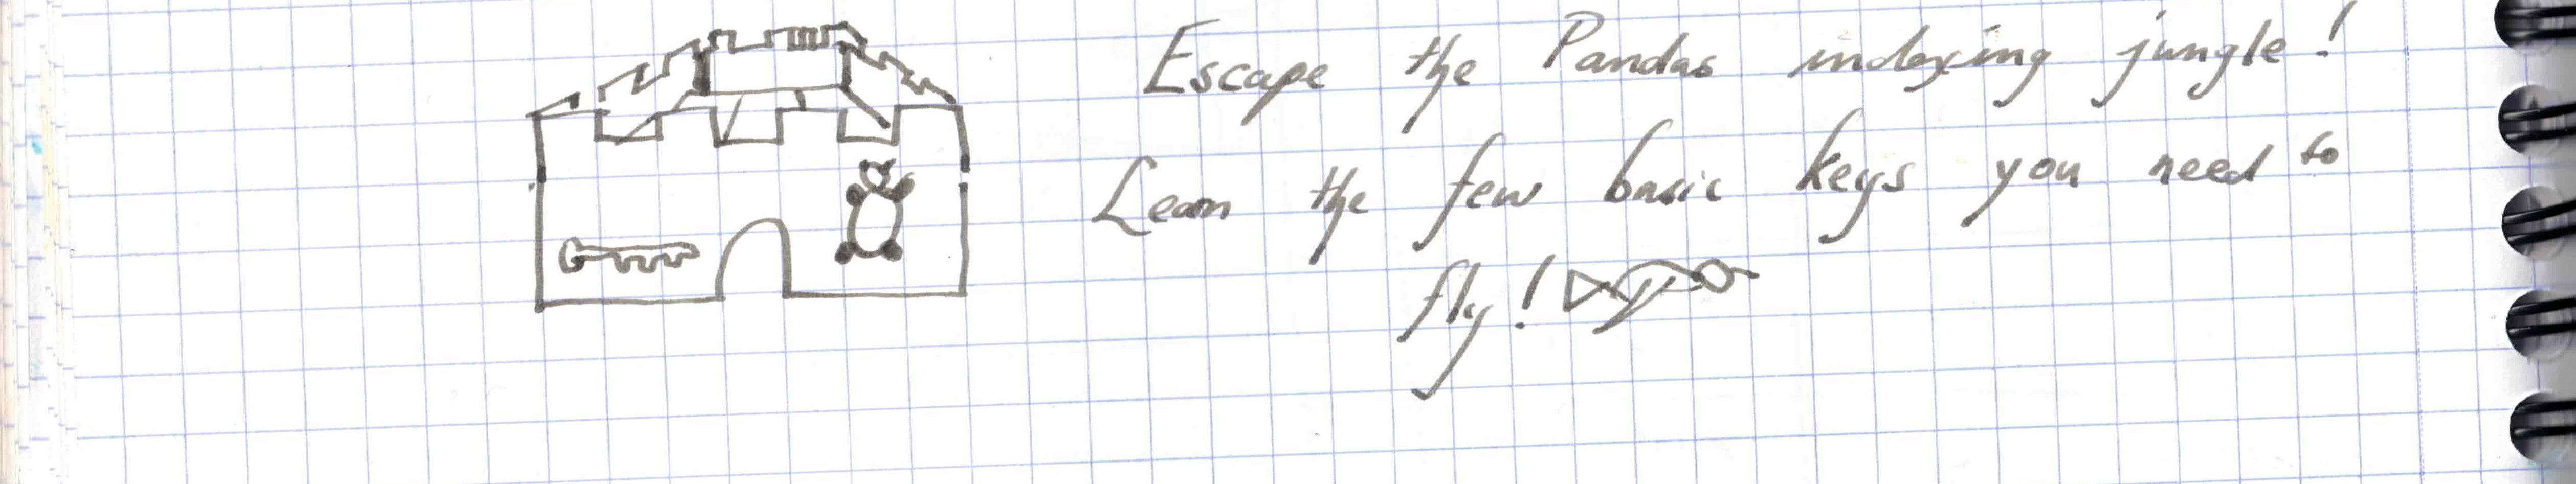 Escape the Pandas indexing jungle!
Learn the few basic keys you need to
fly!